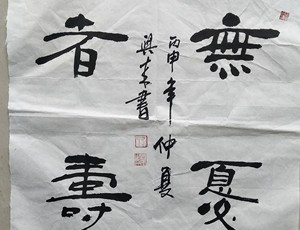 無憂
者壽
丙申年仲夏
書